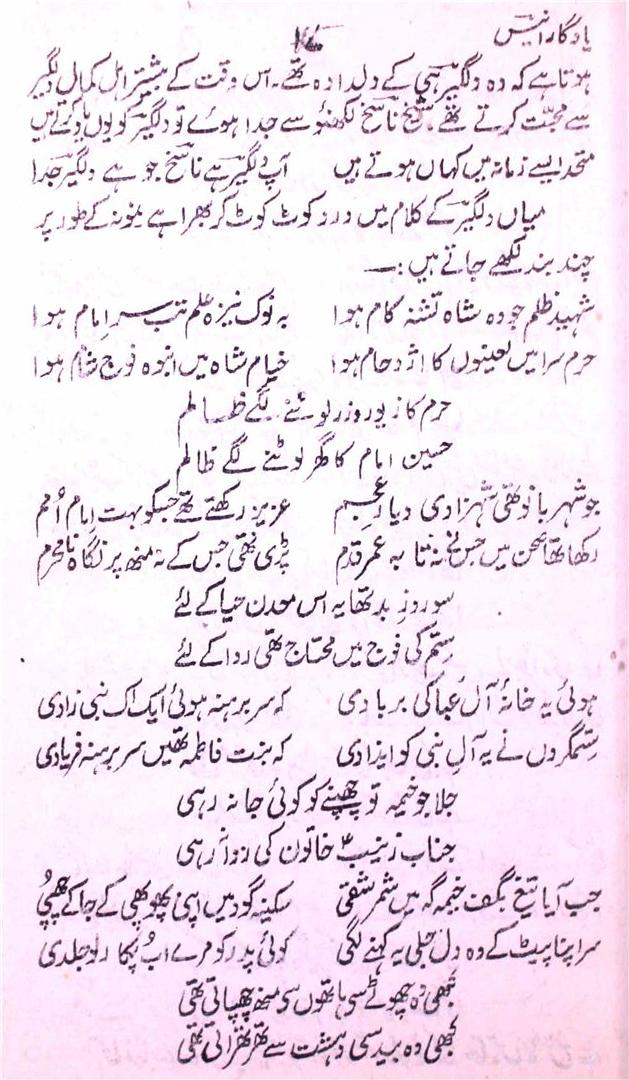 یادگار انیس ۱۷
ہوتا ہے کہ وہ دلگیر ہی کے دلدادہ تھے۔ اس وقت کے بیشتر اہل کمال دلگیر
سے محبت کرتے تھے۔ شیخ ناسخ لکھنؤ سے جدا ہوئے تو دلگیر کو یوں یاد کرتے ہیں
متحد ایسے زمانہ میں کہاں ہوتے ہیں آپ دلگیر ہے ناسخ جو ہے دلگیر جدا
میاں دلگیر کے کلام میں درد کوٹ کوٹ کر بھرا ہے نمونہ کے طور پر
چند بند لکھے جاتے ہیں :۔
شہید ظلم جو وہ شاہ تشنہ کام ہوا بہ نوک نیزہ علم تب سر امام ہوا
حرم سرا میں لعینوں کا اژدحام ہوا خیام شاہ میں انبوہ فوج شام ہوا
حرم کا زیور و زر لوٹنے لگے ظالم
حسین امام کا گھر لوٹنے لگے ظالم
جو شہر بانو تھی شہزادی دیار عجم عزیز رکھتے تھے جسکو بہت امام امم
رکھا تھا صحن میں جس نے نہ تا بہ عمر قدم پڑی نہ تھی جس کے منھ پر نگاہ نامحرم
سو روز بد تھا یہ اس معدن حیا کے لئے
ستم کی فوج میں محتاج تھی ردا کے لئے
ہوئی یہ خانۂ آل عبا کی بربادی کہ سر برہنہ ہوئی ایک اک نبی زادی
ستمگروں نے یہ آل نبی کو ایذا دی کہ بنت فاطمہ تھیں سر برہنہ فریادی
جلا جو خیمہ تو چھپنے کو کوئی جا نہ رہی
جناب زینبؑ خاتون کی ردا نہ رہی
جب آیا تیغ بکف خیمہ گہ میں شمر شقی سکینہ گود میں اپنی پھوپھی کے جا کے چھپی
سر اپنا پیٹ کے وہ دل جلی یہ کہنے لگی کوئی پدر کو مرے اب پکار لو جلدی
کبھی وہ چھوٹے سی ہاتھوں سی منھ چھپاتی تھی
کبھی وہ بید سی دہشت سے تھرتھراتی تھی